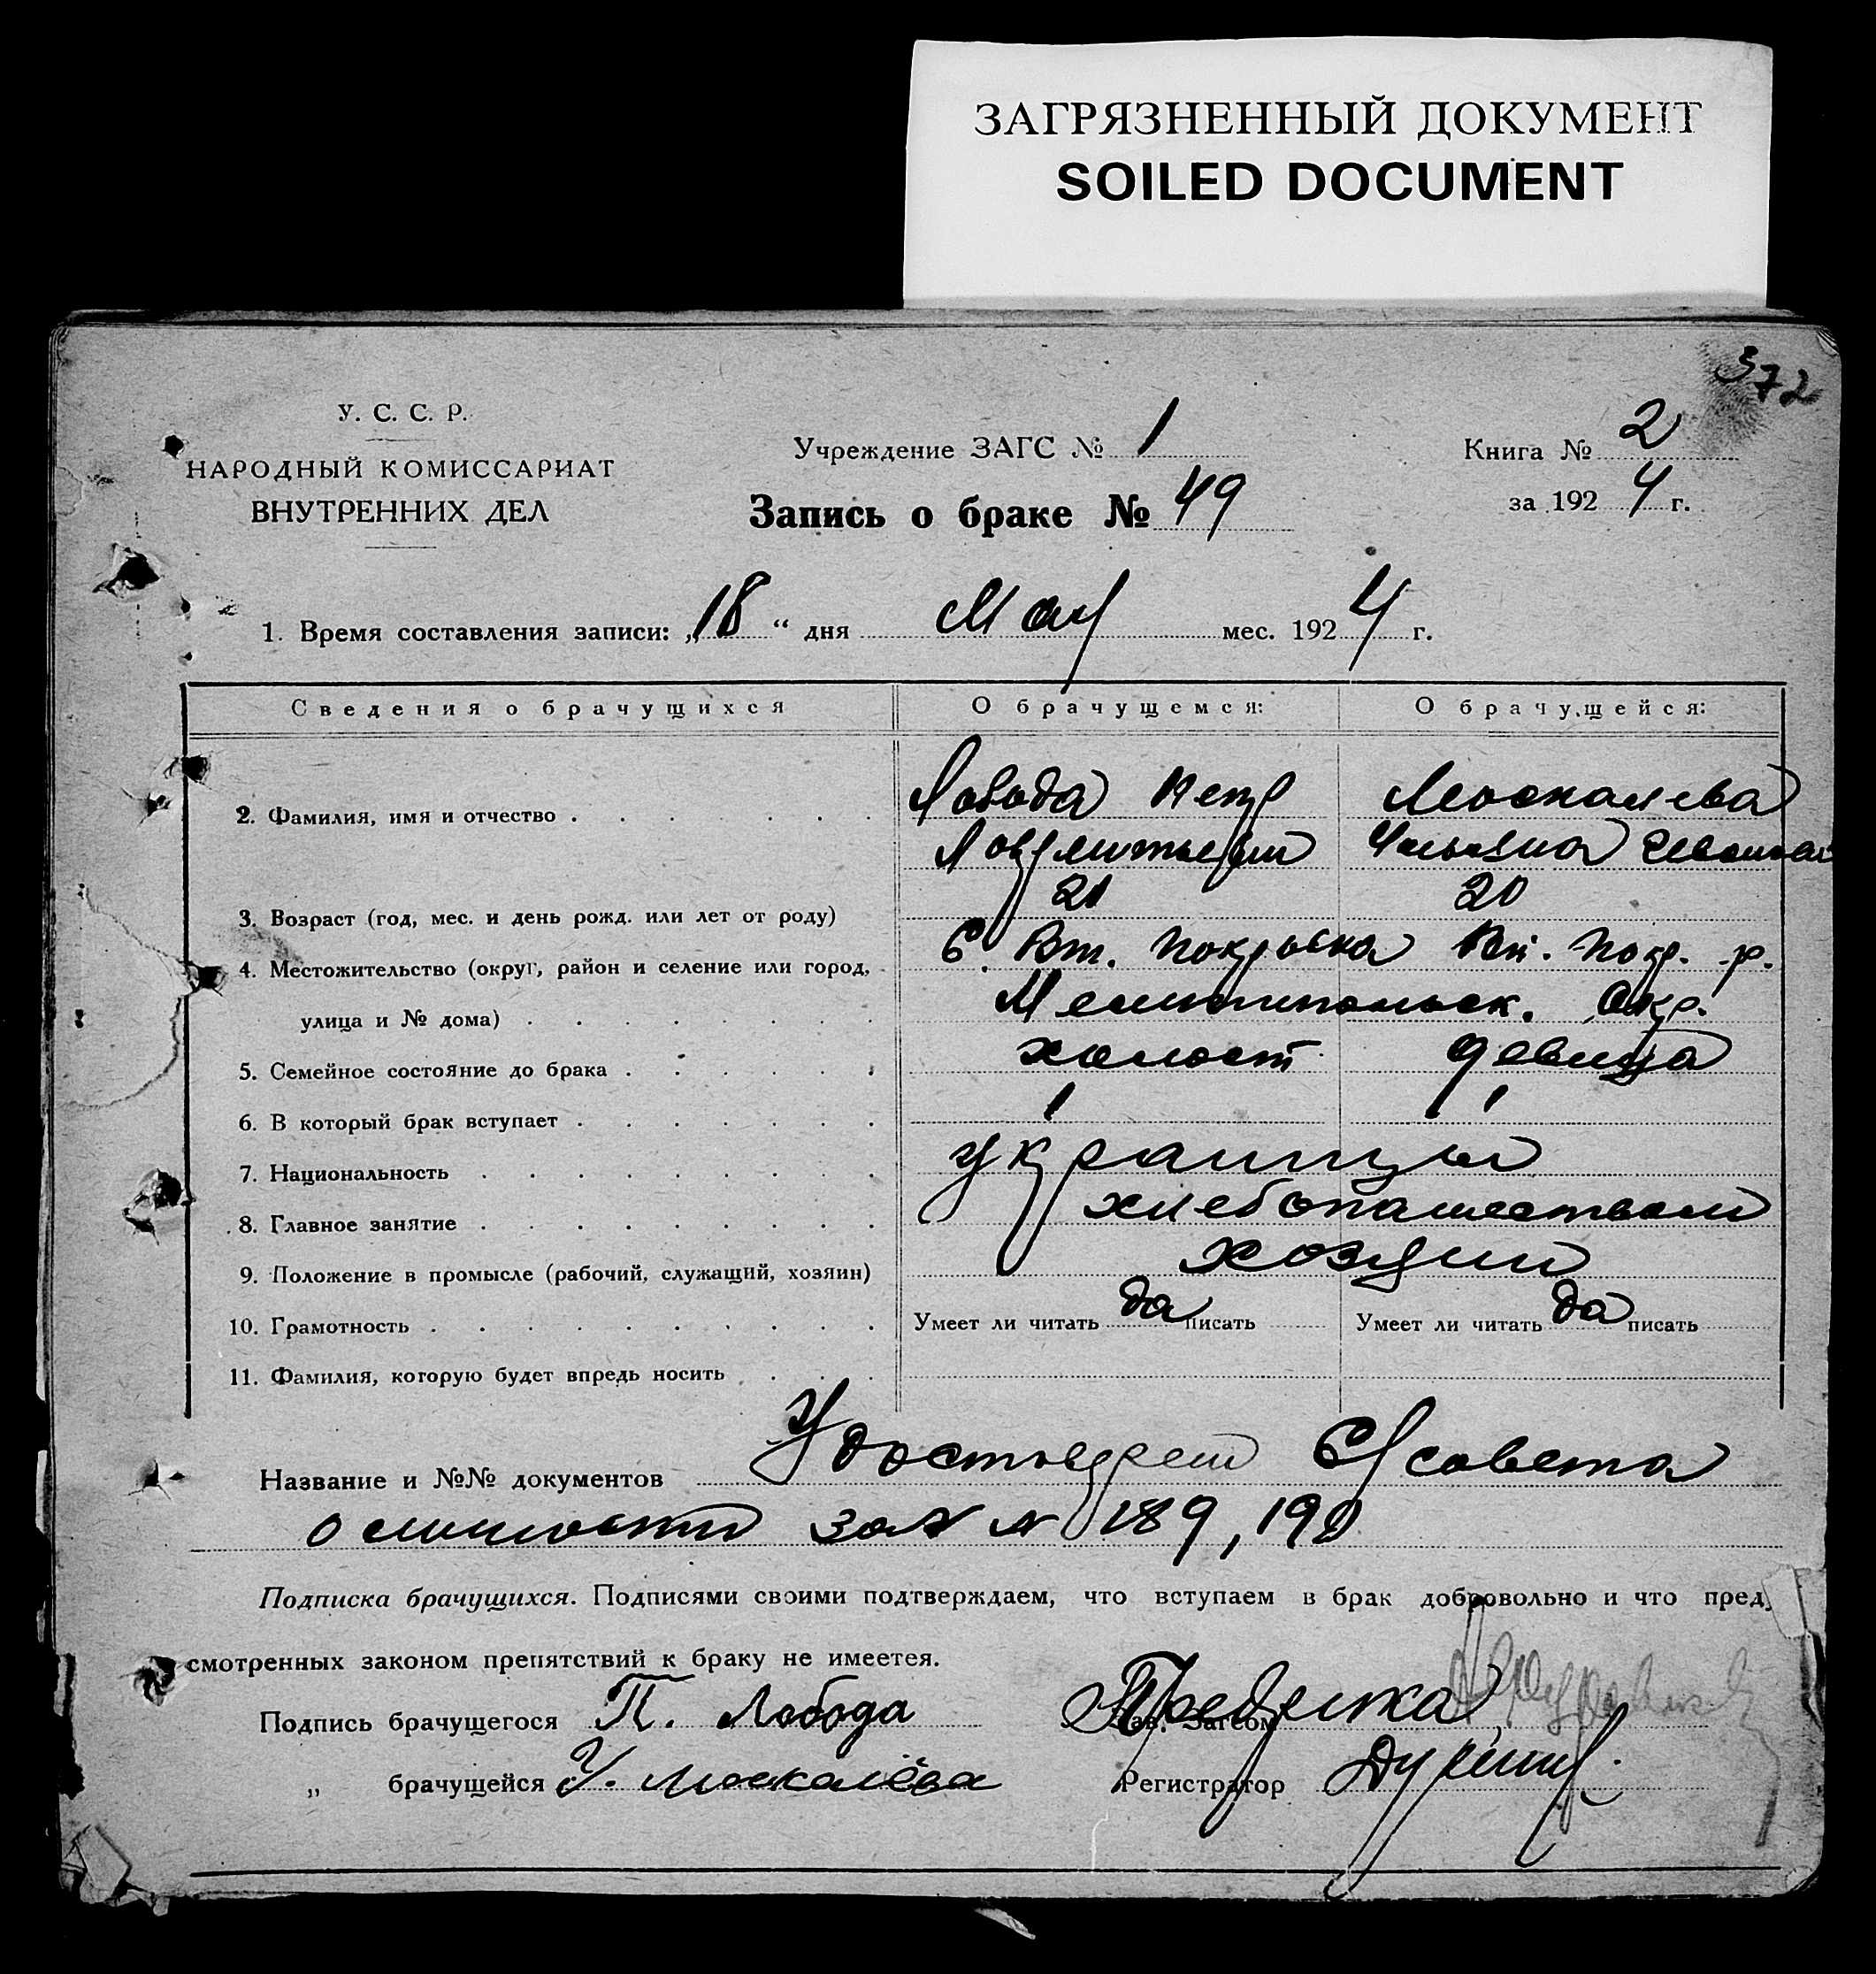 ЗАГРЯЗНЕННЫЙ ДОКУМЕНТ
SOILED DOCUMENT
372
У. С. С. Р.
НАРОДНЫЙ КОМИССАРИАТ
ВНУТРЕННИХ ДЕЛ
Учреждение ЗАГС № 1
Запись о браке № 49
Книга № 2
за 1924 г.
1. Время составления записи: „18“ дня Мая мес. 1924 г.
Сведения о брачущихся О брачущемся: О брачущейся:
2. Фамилия, имя и отчество Лобода Петр Москалева
Ульяна
3. Возраст (год, мес. и день рожд. или лет от роду) 21 20
4. Местожительство (округ, район и селение или город, С. Вт. Покровка Вт. Покр. р.
улица и № дома) Мелитопольск. Окр.
5. Семейное состояние до брака холост девица
6. В который брак вступает 1 1
7. Национальность украинцы
8. Главное занятие хлебопашеством
9. Положение в промысле (рабочий, служащий, хозяин) хозяин
10. Грамотность Умеет ли читать да писать Умеет ли читать да писать
11. Фамилия, которую будет впредь носить
Название и №№ документов Удостоверен С/совета
о личности за № 189, 190
Подписка брачущихся. Подписями своими подтверждаем, что вступаем в брак добровольно и что преду
смотренных законом препятствий к браку не имеется.
Подпись брачущегося П. Лобода Зав. Загсом
„ брачущейся У. Москалёва Регистратор